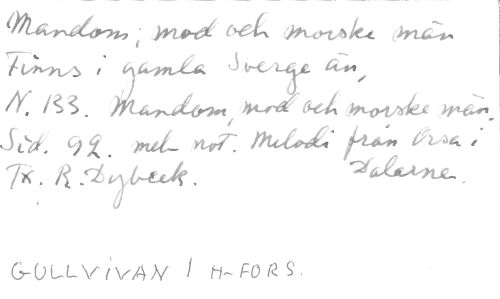 Mandom, mod och morske män
Finns i gamla Sverge än,
N. 133. Mandom, mod och morske män.
Sid. 92. mel- not. Melodi från Orsa i
Tx. R. Dybeck. Dalarne.
GULLVIVAN / H-FORS.